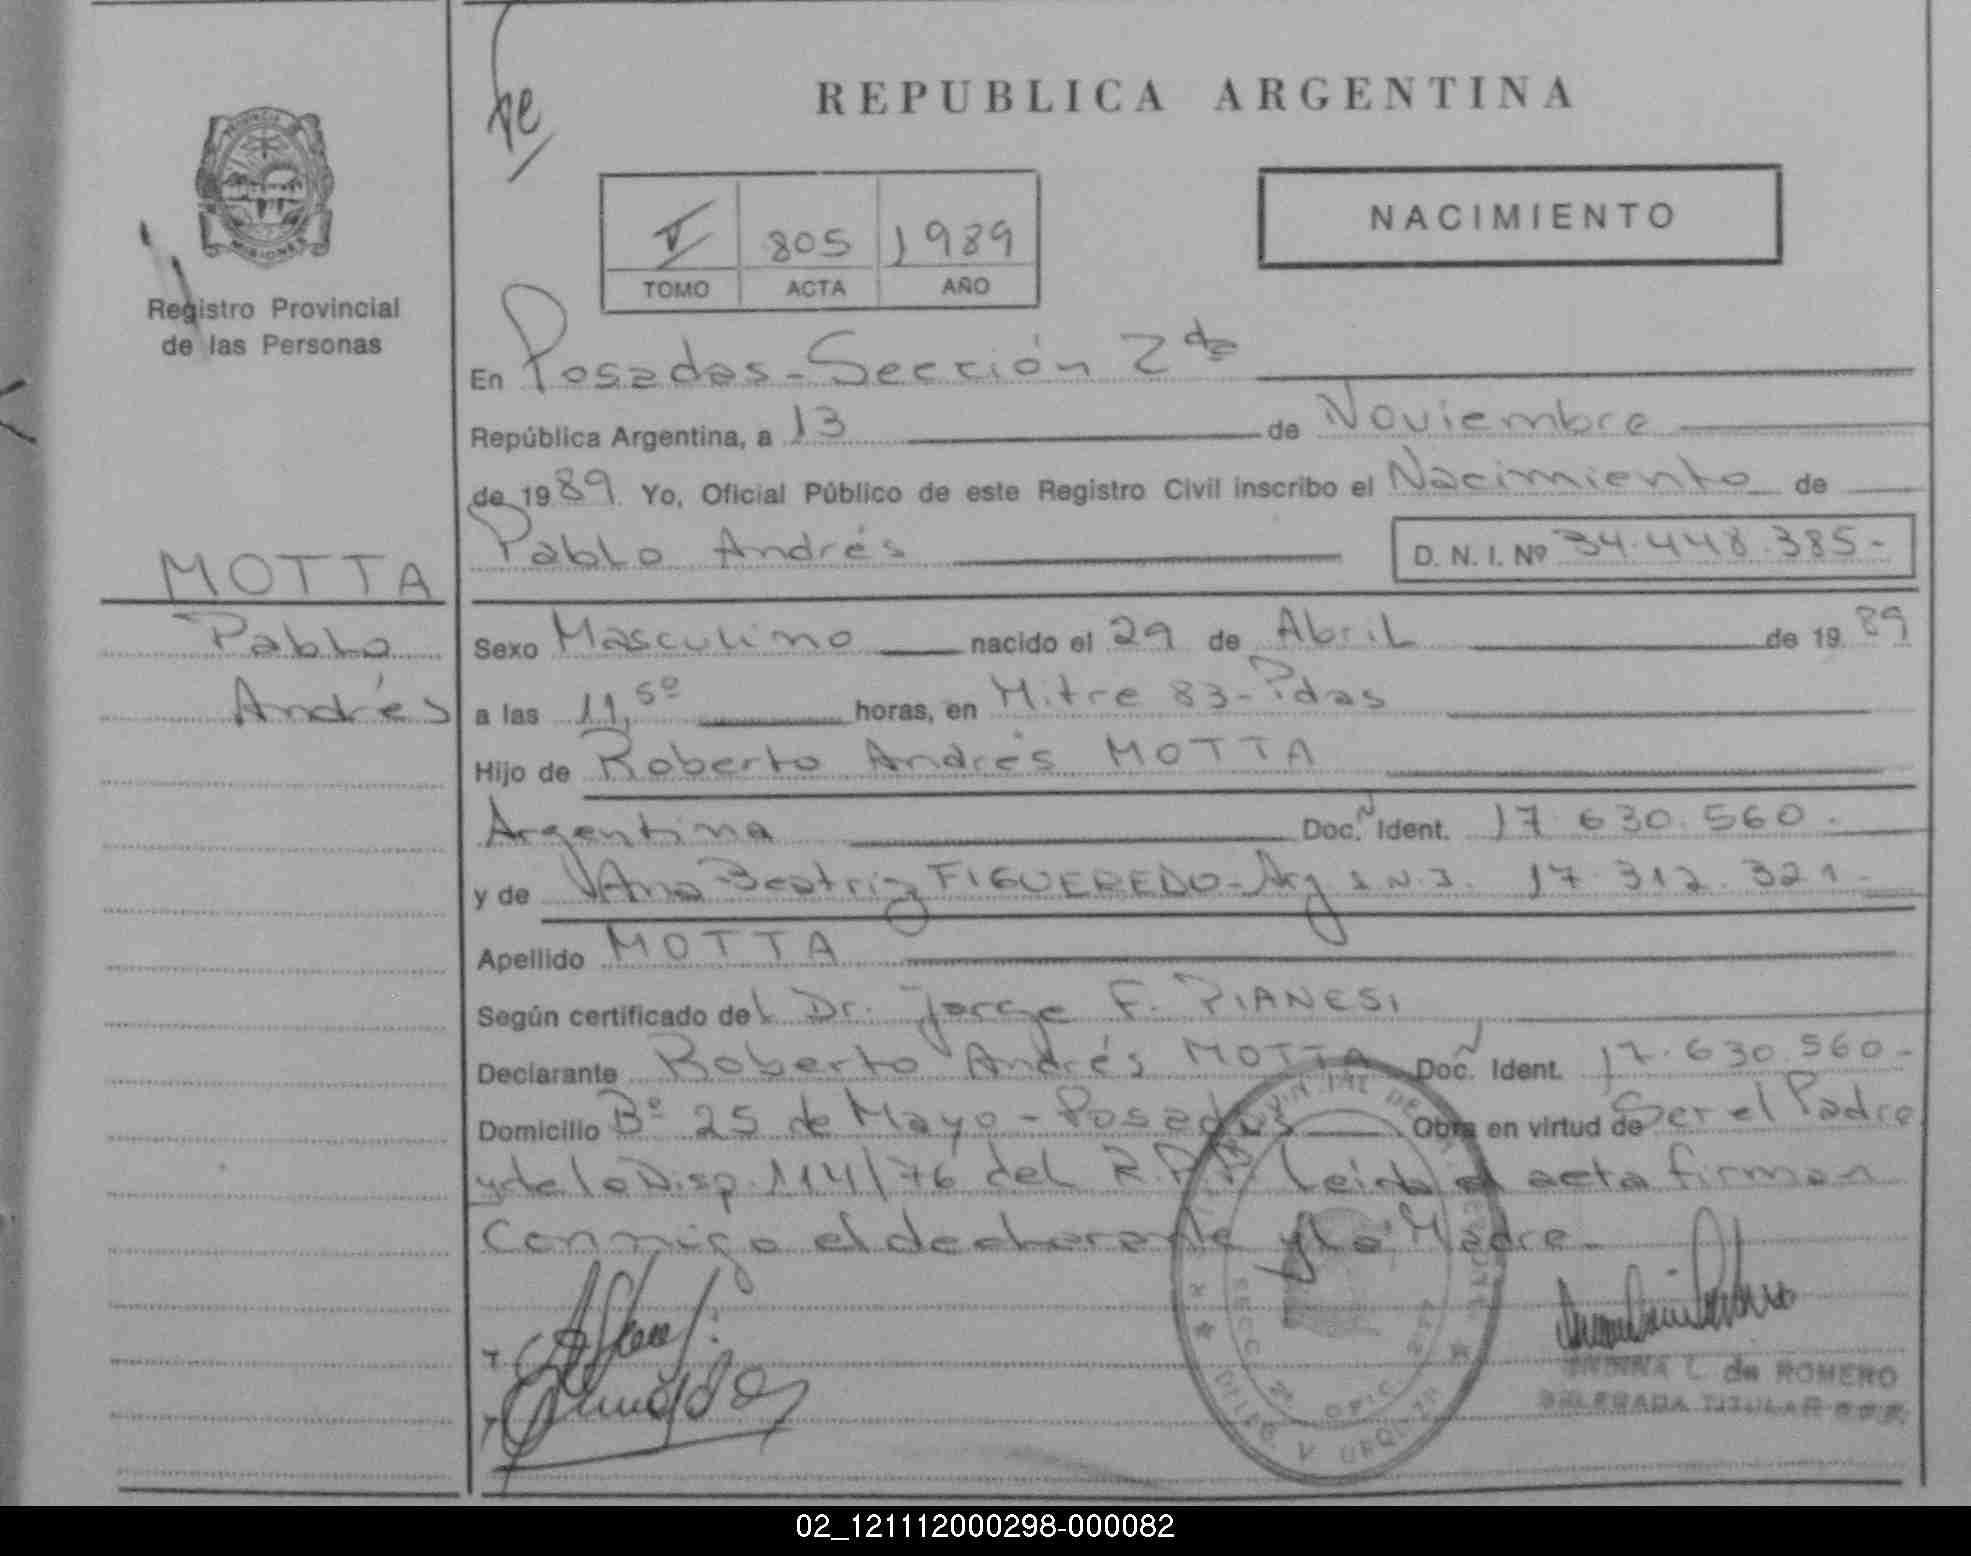 REPUBLICA ARGENTINA
PROVINCIA
MISIONES
Registro Provincial
de las Personas
V 805 1989
TOMO ACTA AÑO
NACIMIENTO
En Posadas - Sección 2da
República Argentina, a 13 de Noviembre
de 1989 Yo, Oficial Público de este Registro Civil inscribo el Nacimiento de
Pablo Andrés D. N. I. Nº 34.448.385-
MOTTA
Pablo
Andrés
Sexo Masculino nacido el 29 de Abril de 1989
a las 11,50 horas, en Mitre 83 - Pdas
Hijo de Roberto Andrés MOTTA
Argentina Doc. Ident. 17.630.560.
y de Ana Beatriz FIGUEREDO - Arg 17.312.321-
Apellido MOTTA
Según certificado del Dr. Jorge F. PIANESI
Declarante Roberto Andrés MOTTA Doc. Ident. 17.630.560-
Domicilio Bº 25 de Mayo - Posadas Obra en virtud de Ser el Padre
y de la Disp. 114/76 del R.P.P. Leida el acta firman
Conmigo el declarante y la Madre -
L. de ROMERO
DELEGADA TITULAR
02_121112000298-000082